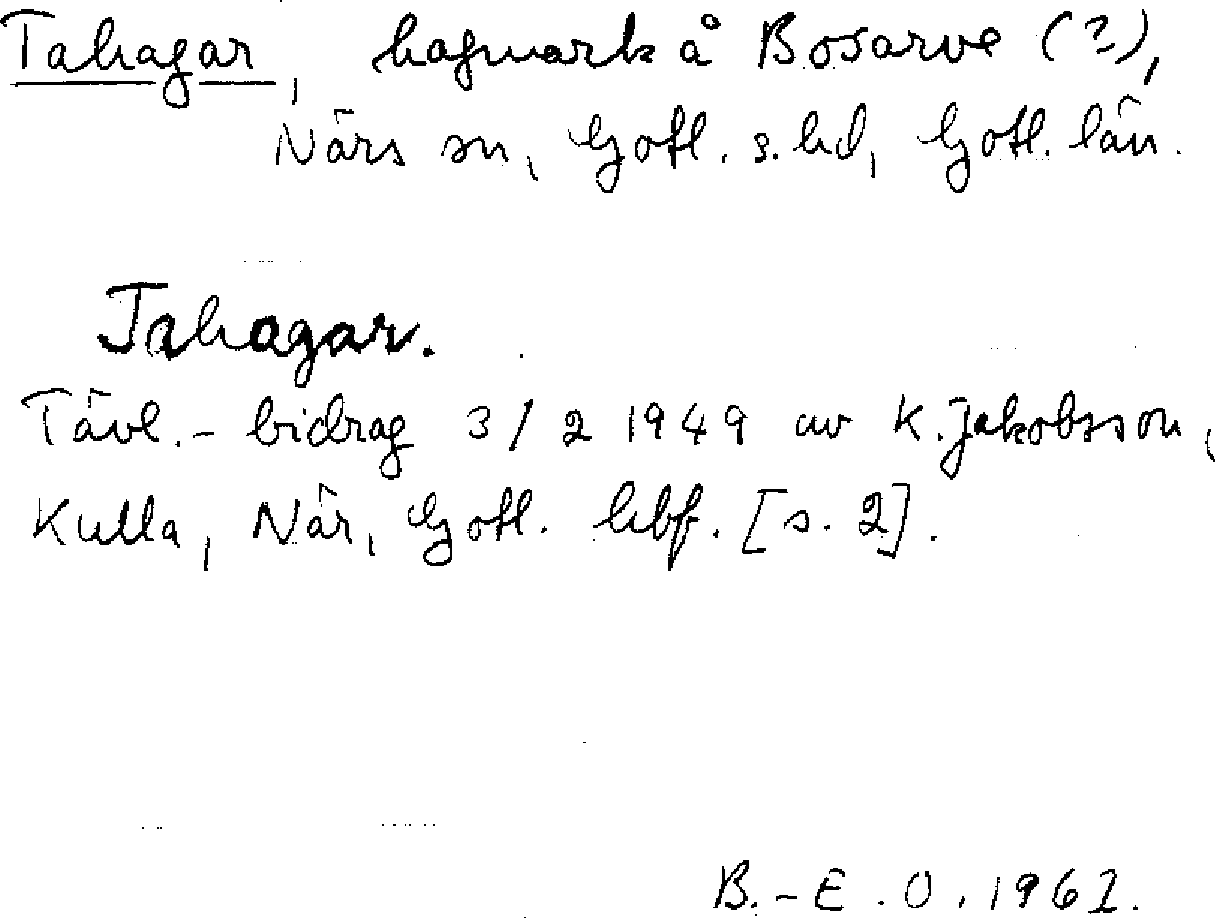 Tahagar, hagmark å Bosarve (?),
Närs sn, Gotl. s. hd, Gotl. län.
Tahagar.
Tävl.- bidrag 3/2 1949 av K. Jakobsson,
Kulla, När, Gotl. hbf. [s. 2].
B.-E. O. 1962.